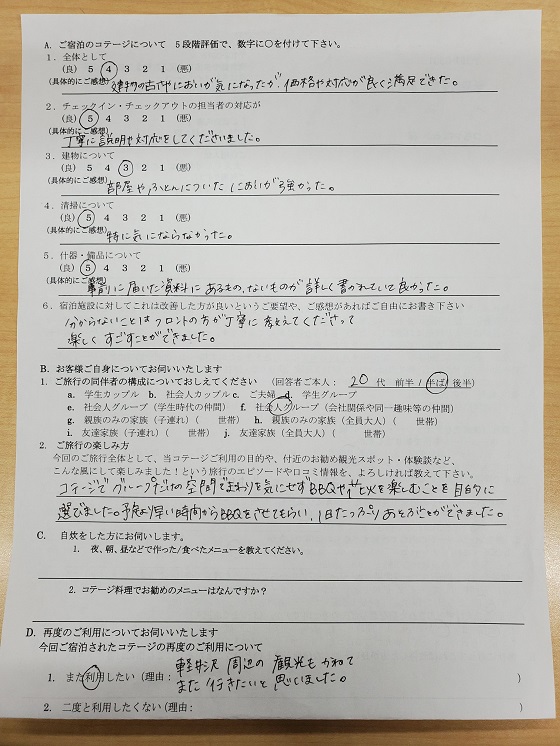 A. ご宿泊のコテージについて 5段階評価で、数字に○を付けて下さい。
1. 全体として
(良) 5 4 3 2 1 (悪)
(具体的にご感想) 建物の古さやにおいが気になったが、価格や対応が良く満足できた。
2. チェックイン・チェックアウトの担当者の対応が
(良) 5 4 3 2 1 (悪)
(具体的にご感想) 丁寧に説明や対応をしてくださいました。
3. 建物について
(良) 5 4 3 2 1 (悪)
(具体的にご感想) 部屋やふとんについたにおいが強かった。
4. 清掃について
(良) 5 4 3 2 1 (悪)
(具体的にご感想) 特に気にならなかった。
5. 什器・備品について
(良) 5 4 3 2 1 (悪)
(具体的にご感想) 事前に届いた資料にあるもの、ないものが詳しく書かれていて良かった。
6. 宿泊施設に対してこれは改善した方が良いというご要望や、ご感想があればご自由にお書き下さい
分からないことはフロントの方が丁寧に教えてくださって
楽しくすごすことができました。
B. お客様ご自身についてお伺いいたします
1. ご旅行の同伴者の構成についておしえてください (回答者ご本人: 20 代 前半 / 半ば / 後半)
a. 学生カップル b. 社会人カップル c. ご夫婦 d. 学生グループ
e. 社会人グループ (学生時代の仲間) f. 社会人グループ (会社関係や同一趣味等の仲間)
g. 親族のみの家族 (子連れ) ( 世帯) h. 親族のみの家族 (全員大人) ( 世帯)
i. 友達家族 (子連れ) ( 世帯) j. 友達家族 (全員大人) ( 世帯)
2. ご旅行の楽しみ方
今回のご旅行全体として、当コテージご利用の目的や、付近のお勧め観光スポット・体験談など、
こんな風にして楽しみました!という旅行のエピソードや口コミ情報を、よろしければ教えて下さい。
コテージでグループだけの空間でまわりを気にせずBBQや花火を楽しむことを目的に
選びました。予定より早い時間からBBQをさせてもらい、1日たっぷりあそぶことができました。
C. 自炊をした方にお伺いします。
1. 夜、朝、昼などで作った/食べたメニューを教えてください。
2. コテージ料理でお勧めのメニューはなんですか?
D. 再度のご利用についてお伺いいたします
今回ご宿泊されたコテージの再度のご利用について
1. また利用したい (理由: 軽井沢周辺の観光もかねて
また行きたいと思いました。 )
2. 二度と利用したくない (理由: )